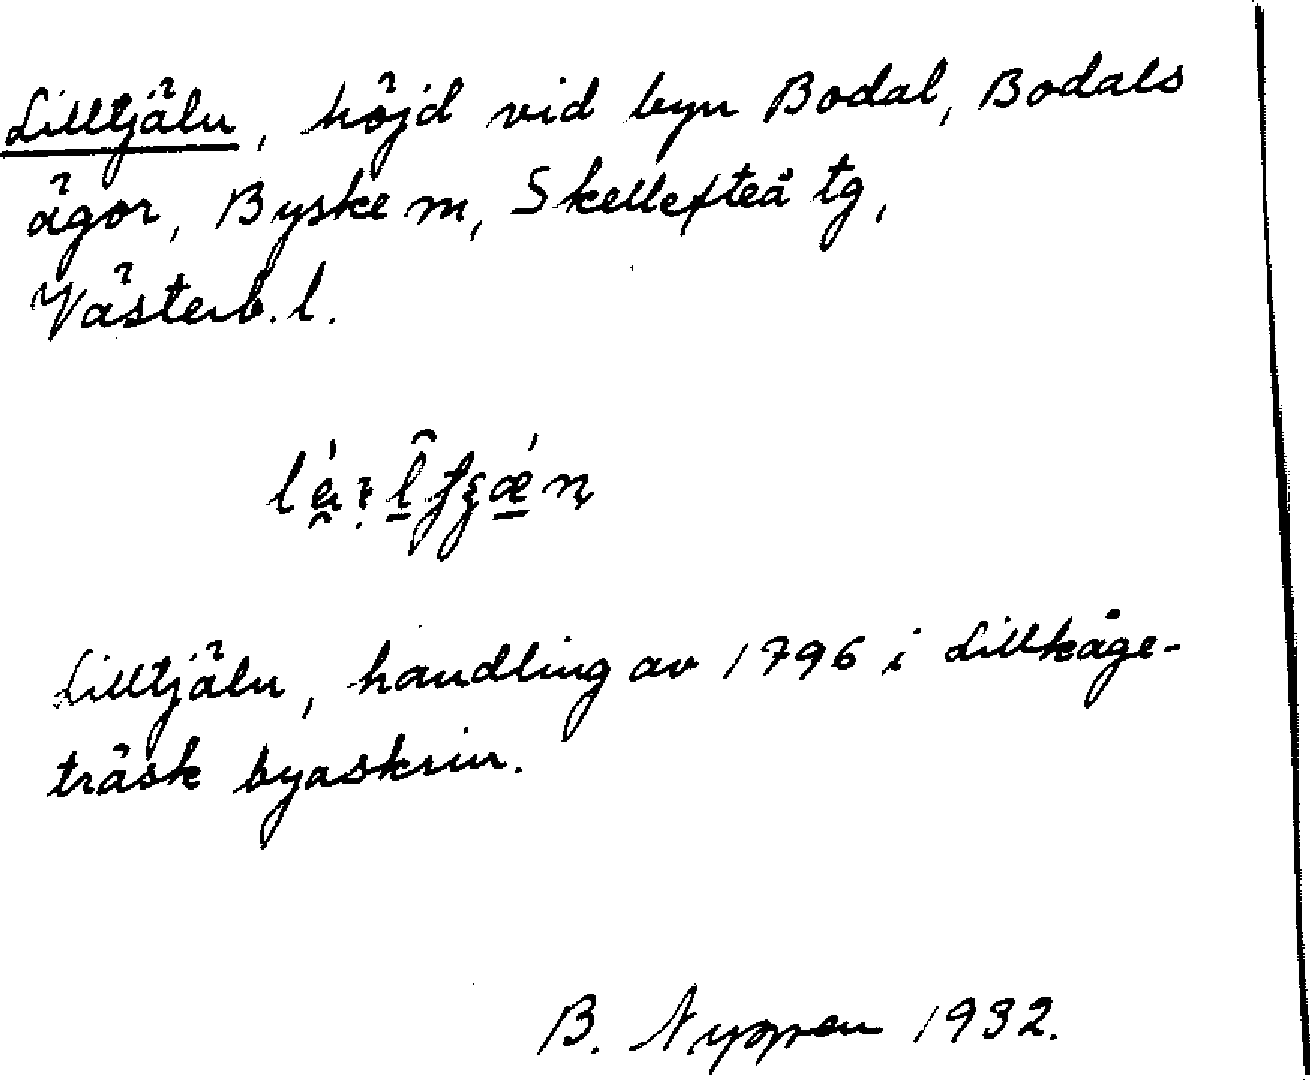 Lilltjäln, höjd vid byn Bodal, Bodals
ägor, Byske m, Skellefteå tg,
Västerb. l.
Lilltjäln, handling av 1796 i Lillkåge-
träsk byaskrin.
B. Nyppen 1932.